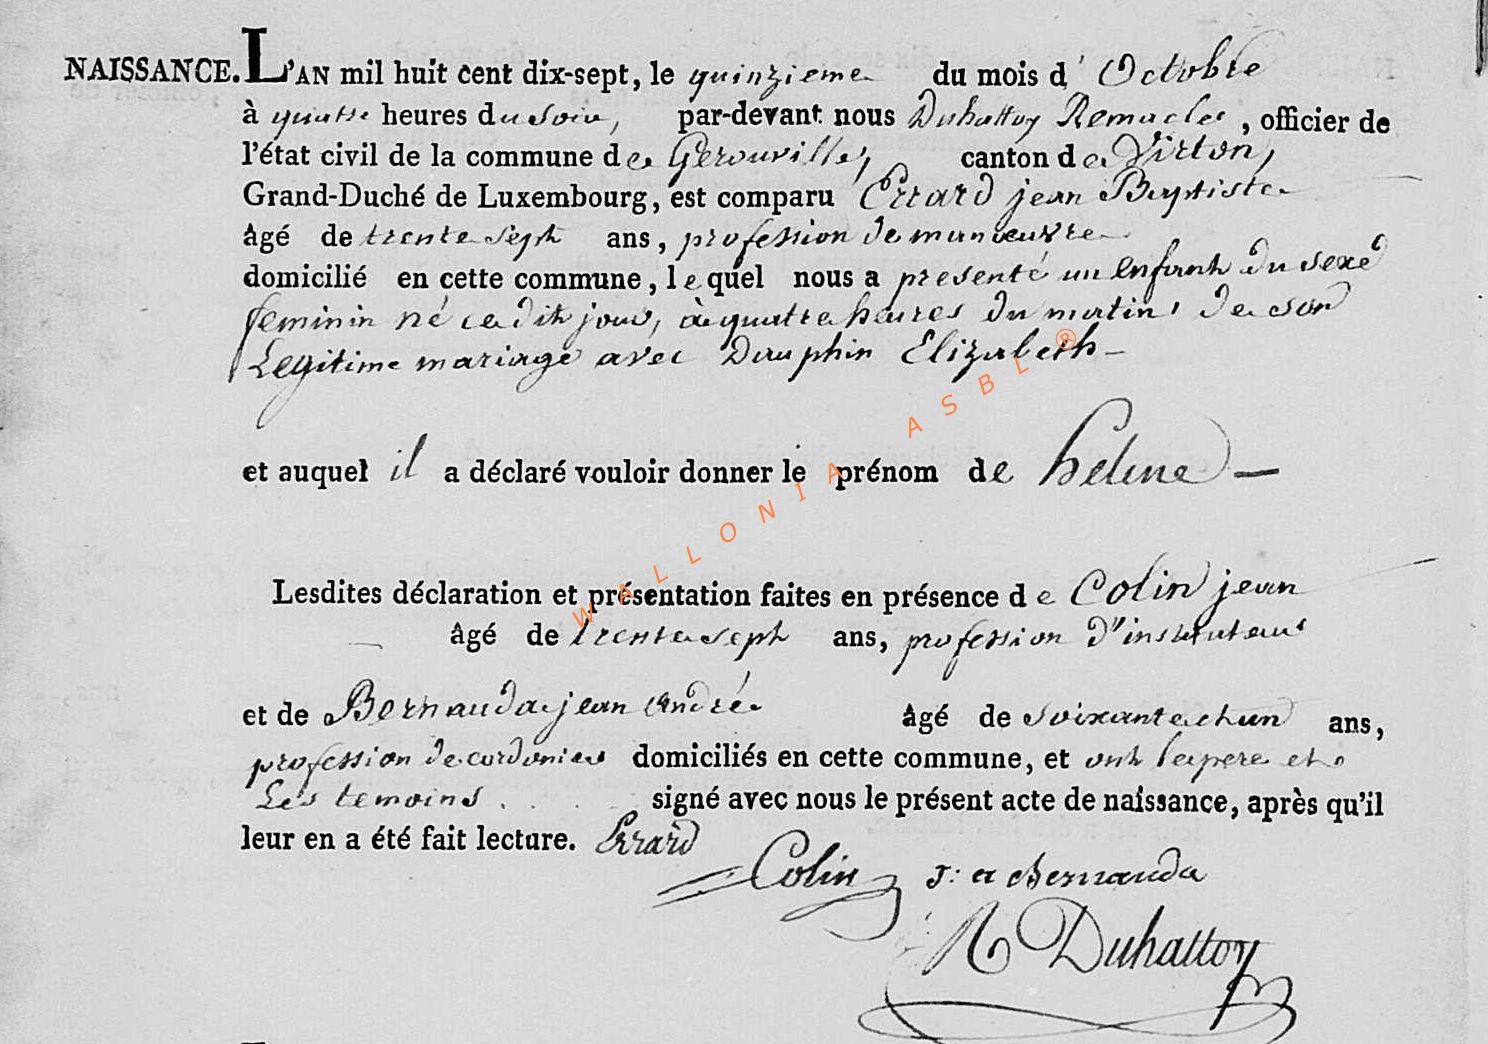 NAISSANCE. L'AN mil huit cent dix-sept, le quinzieme du mois d' Octobre
à quatre heures du soir, par-devant nous Duhattoy Remacle, officier de
l'état civil de la commune de Gerouville, canton de Virton,
Grand-Duché de Luxembourg, est comparu Errard jean Baptiste
âgé de trente sept ans, profession de manœuvre
domicilié en cette commune, lequel nous a presenté un enfant du sexe
feminin né cedit jour, à quatre heures du matin, de son
Legitime mariage avec Dauphin Elizabeth
et auquel il a déclaré vouloir donner le prénom de helene
Lesdites déclaration et présentation faites en présence de Colin jean
âgé de trente sept ans, profession d'instituteur
et de Bernauda jean André âgé de soixante et un ans,
profession de cordonier domiciliés en cette commune, et ont le pere et
Les temoins signé avec nous le présent acte de naissance, après qu'il
leur en a été fait lecture. Errard
Colin J: a Bernauda
R Duhattoy
WALLONIA ASBL ®